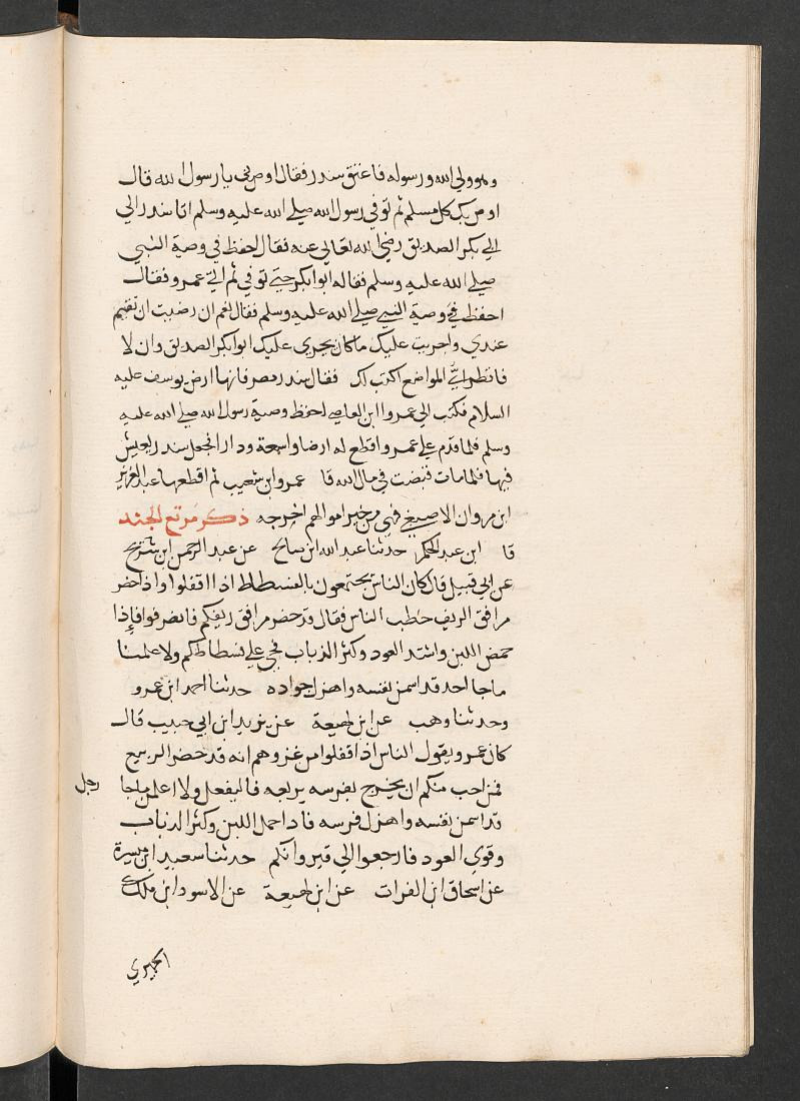 وهو ولي الله ورسوله فاعتق سندر فقال اوص بي يا رسول الله قال
اوص بك كل مسلم ثم توفي رسول الله صلي الله عليه وسلم اتا سندر الي
الي بكر الصديق رضي الله تعالي عنه فقال احفظ في وصية النبي
صلي الله عليه وسلم فقاله ابوابكر حتي توفي ثم الي عمرو فقال
احفظ في وصية النبي صلي الله عليه وسلم فقال نعم ان رضيت ان تقيم
عندي واجريت عليك ما كان يجري عليك ابوابكر الصديق وان لا
فانظر اي المواضع اكتب لك فقال سندر مصر فانها ارض يوسف عليه
السلام فكتب الي عمروا ابن العاصي احفظ وصية رسول الله صلي الله عليه
وسلم فلما قدم علي عمرو اقطع له ارضا واسعة ودار فجعل سندر يعيش
فيها فلما مات قبضت في مال الله قا عمرو ابن شعيب ثم اقطعها عبد العزيز
ابن مروان الاصبغ فهي من خير اموالهم اخرجه ذكر مرتع الجند
قا ابن عبد الحكم حدثنا عبد الله ابن صالح عن عبد الرحمن ابن شريح
عن ابي قبيل قال كان الناس يجتمعون بالفسطاط اذا اقفلوا واذا حضر
مرافق الريف خطب الناس فقال قد حضر مرافق ريفكم فانصرفوا فإذا
حمض اللبن واشتد العود وكثر الذباب فحي علي فسطاطكم ولا علمنا
ما جا احد قد اسمن نفسه واهزل جواده حدثنا احمد ابن عمرو
وحدثنا وهب عن ابن لهيعة عن يزيد ابن ابي حبيب قال
كان عمرو يقول الناس اذا قفلوا من غزوهم انه قد حضر الربيع
فمن احب منكم ان يخرج بفرسه يربعه فاليفعل ولا اعلمن ما جا رجل
قد اسمن نفسه واهزل فرسه فاذا حمل اللبن وكثر الذباب
وقوي العود فارجعوا الي قيروانكم حدثنا سعيد ابن ميسرة
عن اسحاق ابن الفرات عن ابن لهيعة عن الاسود ابن ملك
الحميري